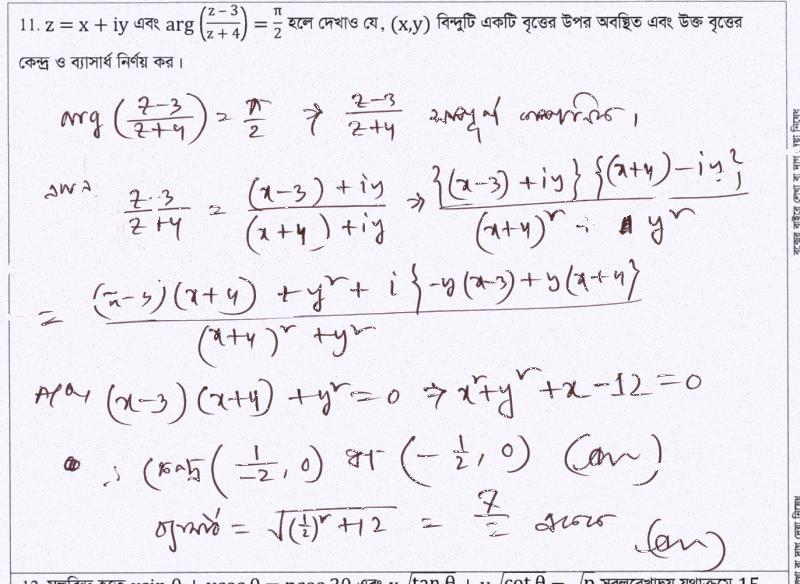 11. z = x + iy এবং arg ((z − 3)/(z + 4)) = π/2 হলে দেখাও যে, (x,y) বিন্দুটি একটি বৃত্তের উপর অবস্থিত এবং উক্ত বৃত্তের
কেন্দ্র ও ব্যাসার্ধ নির্ণয় কর।
arg ((z−3)/(z+4)) = π/2 ⇒ (z−3)/(z+4) সম্পূর্ণ কাল্পনিক।
এখন (z-3)/(z+4) = ((x−3)+iy)/((x+4)+iy) ⇒ {(x−3)+iy} {(x+4)−iy}/(x+4)² + y²
= ((x−3)(x+4) + y² + i{-y(x-3)+y(x+4)})/((x+4)² + y²)
(x−3)(x+4) + y² = 0 ⇒ x²+y²+x−12=0
∴ কেন্দ্র (1/−2, 0) বা (−1/2, 0) (Ans)
ব্যাসার্ধ = √((1/2)² + 12) = 7/2 একক (Ans)